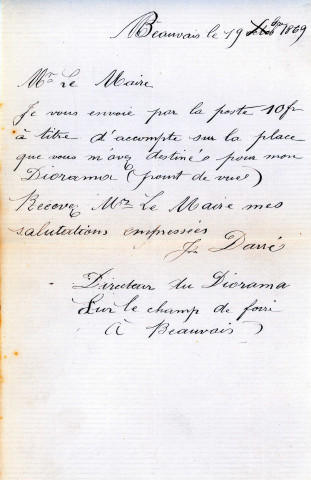 Beauvais le 19 8bre 1869
Mr Le Maire
Je vous envoie par la poste 10 fr
à titre d'accompte sur la place
que vous m'avez destinés pour mon
Diorama (point de vue)
Recevez Mr Le Maire mes
salutations empressées
Darré
Directeur du Diorama
Sur le champ de foire
(à Beauvais)